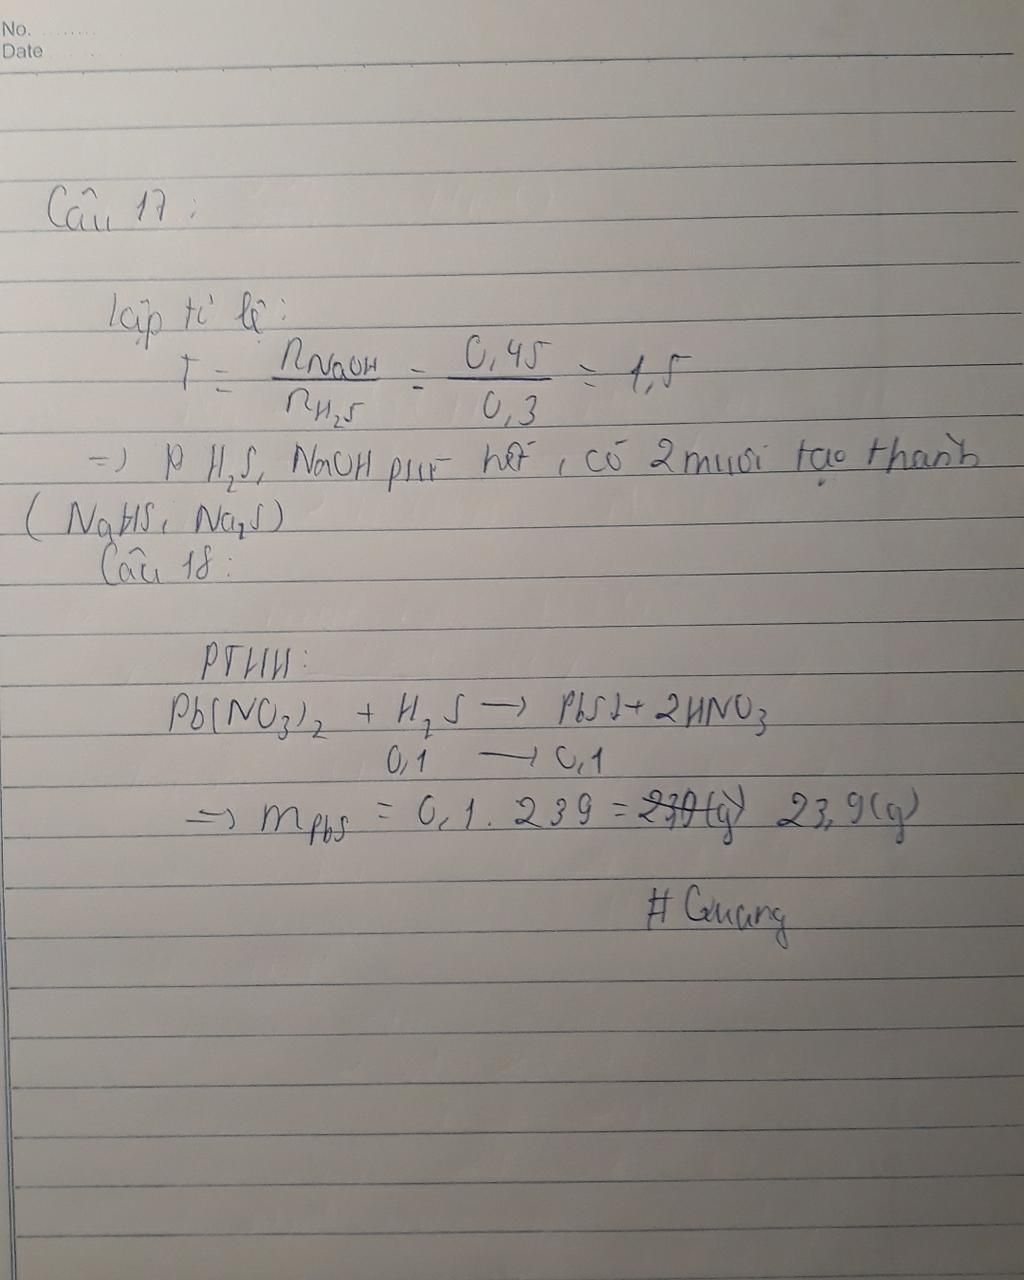 No. ........
Date
Câu 17:
lập tỉ lệ:
T = nNaOH / nH₂S = 0,45 / 0,3 = 1,5
=> H₂S, NaOH pư hết, có 2 muối tạo thành
(NaHS, Na₂S)
Câu 18:
PTHH:
Pb(NO₃)₂ + H₂S → PbS↓ + 2HNO₃
0,1 → 0,1
=> mPbS = 0,1 . 239 = 23,9(g)
# Quang